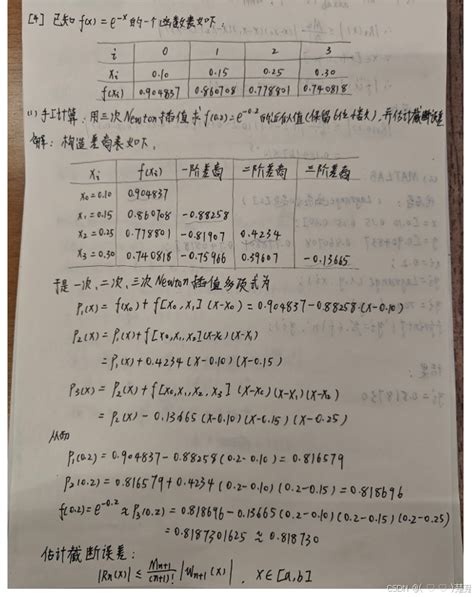 [4] 已知 f(x)=e^-x 的一个函数表如下:
i 0 1 2 3
xi 0.10 0.15 0.25 0.30
f(xi) 0.904837 0.860708 0.778801 0.740818
(1) 手工计算: 用三次Newton插值求f(0.2)=e^-0.2的近似值(保留6位小数),并估计截断误差
解: 构造差商表如下,
xi f(xi) 一阶差商 二阶差商 三阶差商
x0=0.10 0.904837
x1=0.15 0.860708 -0.88258
x2=0.25 0.778801 -0.81907 0.4234
x3=0.30 0.740818 -0.75966 0.39607 -0.13665
于是一次、二次、三次Newton插值多项式为
P1(x) = f(x0) + f[x0,x1](x-x0) = 0.904837-0.88258(x-0.10)
P2(x) = P1(x) + f[x0,x1,x2](x-x0)(x-x1)
= P1(x) + 0.4234(x-0.10)(x-0.15)
P3(x) = P2(x) + f[x0,x1,x2,x3](x-x0)(x-x1)(x-x2)
= P2(x) - 0.13665(x-0.10)(x-0.15)(x-0.25)
从而
P1(0.2) = 0.904837-0.88258(0.2-0.10) = 0.816579
P2(0.2) = 0.816579+0.4234(0.2-0.10)(0.2-0.15) = 0.818696
f(0.2)=e^-0.2≈P3(0.2) = 0.818696-0.13665(0.2-0.10)(0.2-0.15)(0.2-0.25)
= 0.8187301625 ≈ 0.818730
估计截断误差:
|Rn(x)| ≤ Mn+1/(n+1)! |Wn+1(x)| , x∈[a,b]